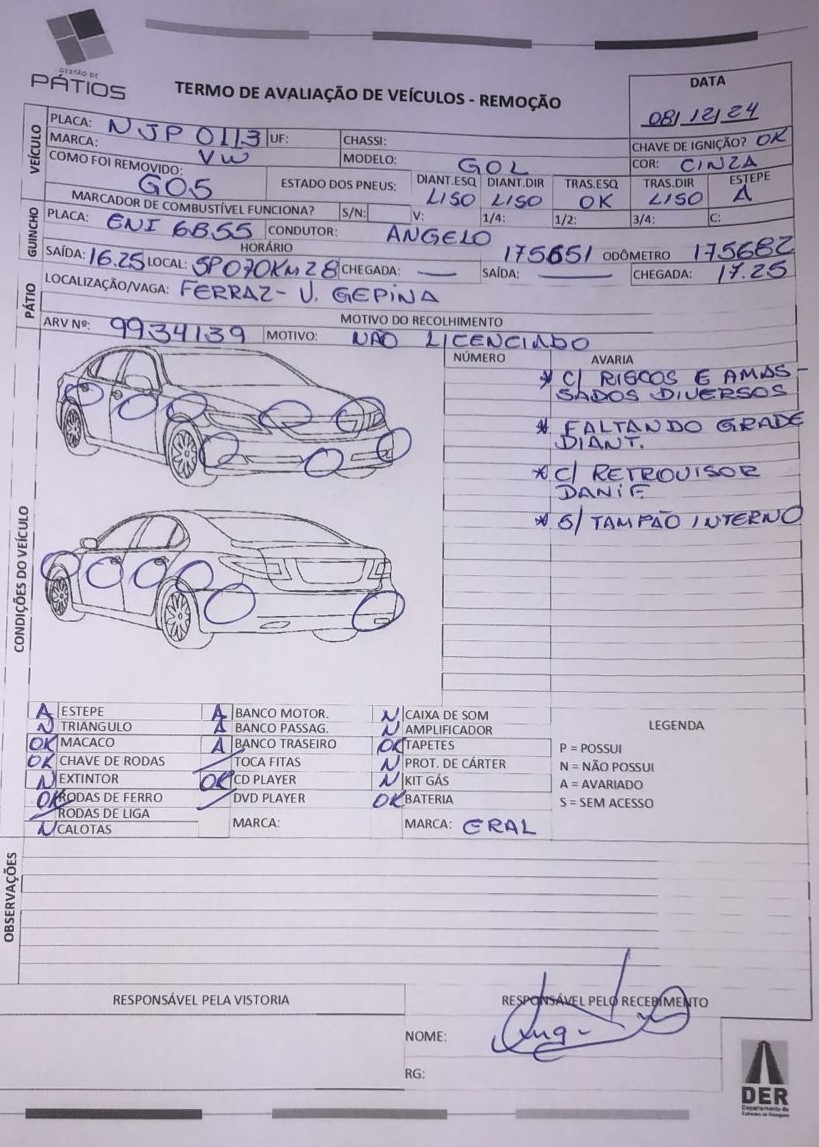 GESTÃO DE
PÁTIOS
TERMO DE AVALIAÇÃO DE VEÍCULOS - REMOÇÃO
DATA
08/12/24
VEÍCULO
PLACA: NJP 0113 UF: CHASSI: CHAVE DE IGNIÇÃO? OK
MARCA: VW MODELO: GOL COR: CINZA
COMO FOI REMOVIDO: GO5 ESTADO DOS PNEUS: DIANT.ESQ LISO DIANT.DIR LISO TRAS.ESQ OK TRAS.DIR LISO ESTEPE A
MARCADOR DE COMBUSTÍVEL FUNCIONA? S/N: V: 1/4: 1/2: 3/4: C:
GUINCHO
PLACA: ENI 6B55 CONDUTOR: ANGELO
HORÁRIO 175651 ODÔMETRO 175682
SAÍDA: 16.25 LOCAL: SP070KM28 CHEGADA: — SAÍDA: — CHEGADA: 17.25
PÁTIO
LOCALIZAÇÃO/VAGA: FERRAZ - V. GEPINA
MOTIVO DO RECOLHIMENTO
ARV Nº: 9934139 MOTIVO: NÃO LICENCIADO
CONDIÇÕES DO VEÍCULO
NÚMERO AVARIA
* C/ RISCOS E AMAS-
SADOS DIVERSOS
* FALTANDO GRADE
DIANT.
* C/ RETROVISOR
DANIF.
* S/ TAMPÃO INTERNO
A ESTEPE A BANCO MOTOR. N CAIXA DE SOM
N TRIÂNGULO A BANCO PASSAG. N AMPLIFICADOR
OK MACACO A BANCO TRASEIRO OK TAPETES
OK CHAVE DE RODAS / TOCA FITAS N PROT. DE CÁRTER
N EXTINTOR OK CD PLAYER N KIT GÁS
OK RODAS DE FERRO / DVD PLAYER OK BATERIA
/ RODAS DE LIGA MARCA: MARCA: ERAL
N CALOTAS
LEGENDA
P = POSSUI
N = NÃO POSSUI
A = AVARIADO
S = SEM ACESSO
OBSERVAÇÕES
RESPONSÁVEL PELA VISTORIA RESPONSÁVEL PELO RECEBIMENTO
NOME:
RG:
DER
Departamento de
Estradas de Rodagem